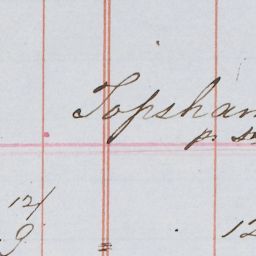 Topsham
p.
12/
9
12